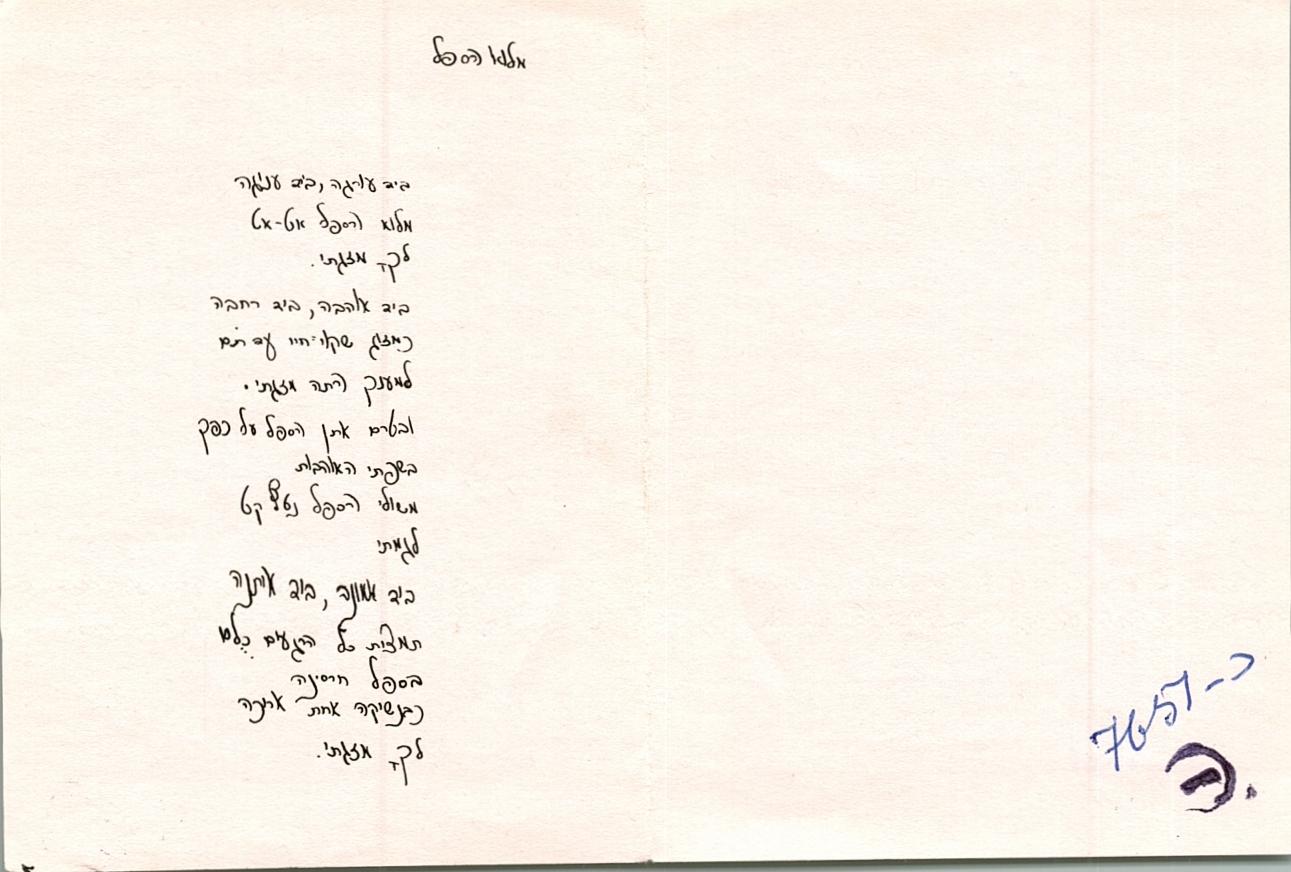 מלוא הספל
ביד עורגה, ביד ענוגה
מלוא הספל אט-אט
לךָ מזגתי.
ביד אוהבה, ביד רחבה
כמזוג שקוי-חיי עד תֹם
למענך התה מזגתי.
ובטרם אתן הספל על כפך
בשפתי האוהבות
משולי הספל נטף קט
לגמתי
ביד אמונה, ביד איתנה
תמצית כל הרגעים כֻּלם
בספל חרסינה
כבנשיקה אחת ארוכה
לךָ מזגתי.